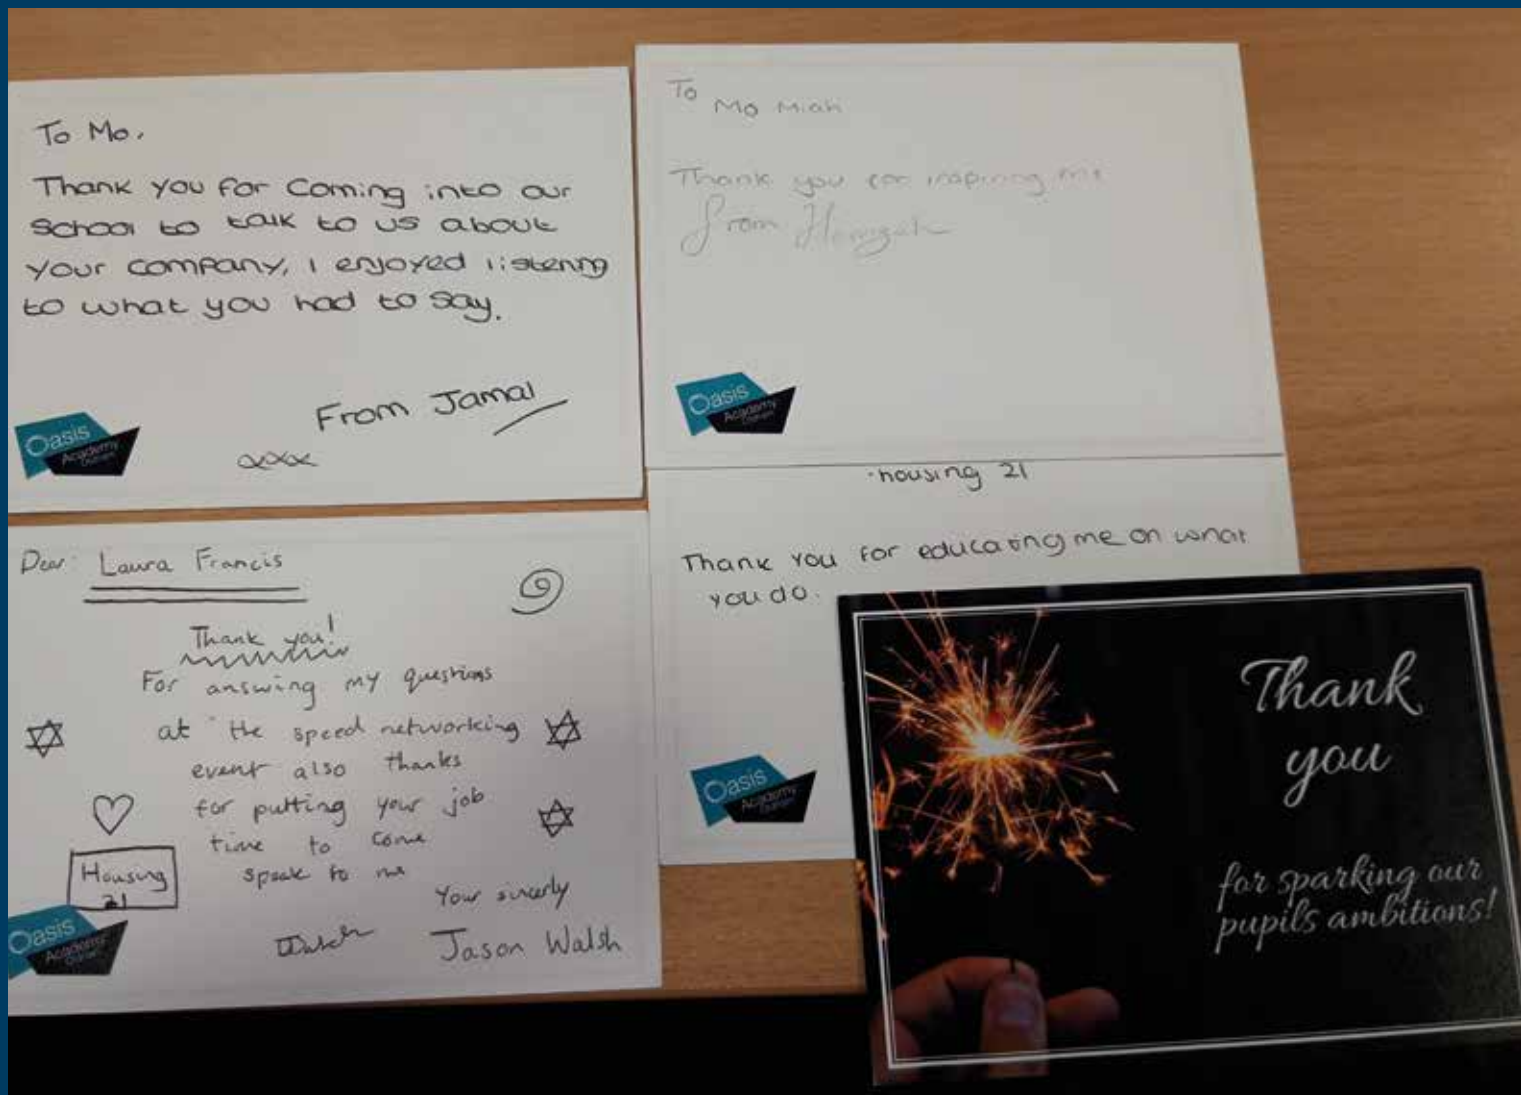 To Mo,
Thank you for coming into our
school to talk to us about
your company, I enjoyed listening
to what you had to say.
From Jamal
xxx
Oasis
Academy
Oldham
To
Mo Miah
Thank you for inspiring me
from Hamzah
Oasis
Academy
Oldham
Dear Laura Francis
Thank you!
For answing my questions
at the speed networking
event also thanks
for putting your job
time to come
speak to me
Housing
21
Your sincerly
Jason Walsh
Oasis
Academy
Oldham
housing 21
Thank you for educating me on what
you do.
Oasis
Academy
Oldham
Thank
you
for sparking our
pupils ambitions!